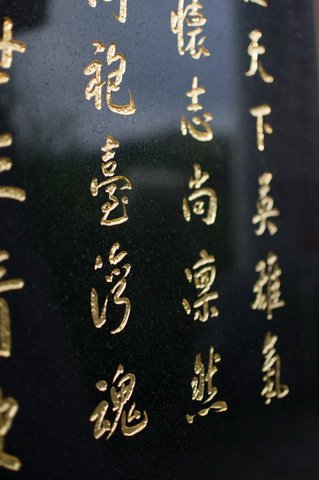 天下英雄氣
懷志尚凜然
袍臺灣魂
青史